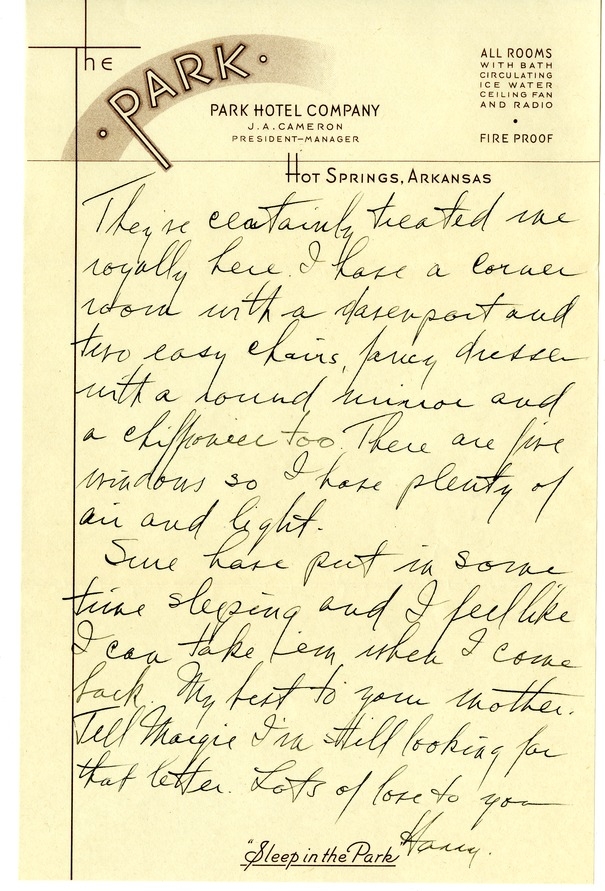 The PARK
ALL ROOMS
WITH BATH
CIRCULATING
ICE WATER
CEILING FAN
AND RADIO
•
FIRE PROOF
PARK HOTEL COMPANY
J. A. CAMERON
PRESIDENT-MANAGER
HOT SPRINGS, ARKANSAS
They've certainly treated me
royally here. I have a corner
room with a davenport and
two easy chairs, fancy dresser
with a round mirror and
a chifforier too. There are five
windows so I have plenty of
air and light.
Sure have put in some
time sleeping and I feel like
I can take 'em when I come
back. My best to your mother.
Tell Margie I'm still looking for
that letter. Lots of love to you
Harry.
"Sleep in the Park"